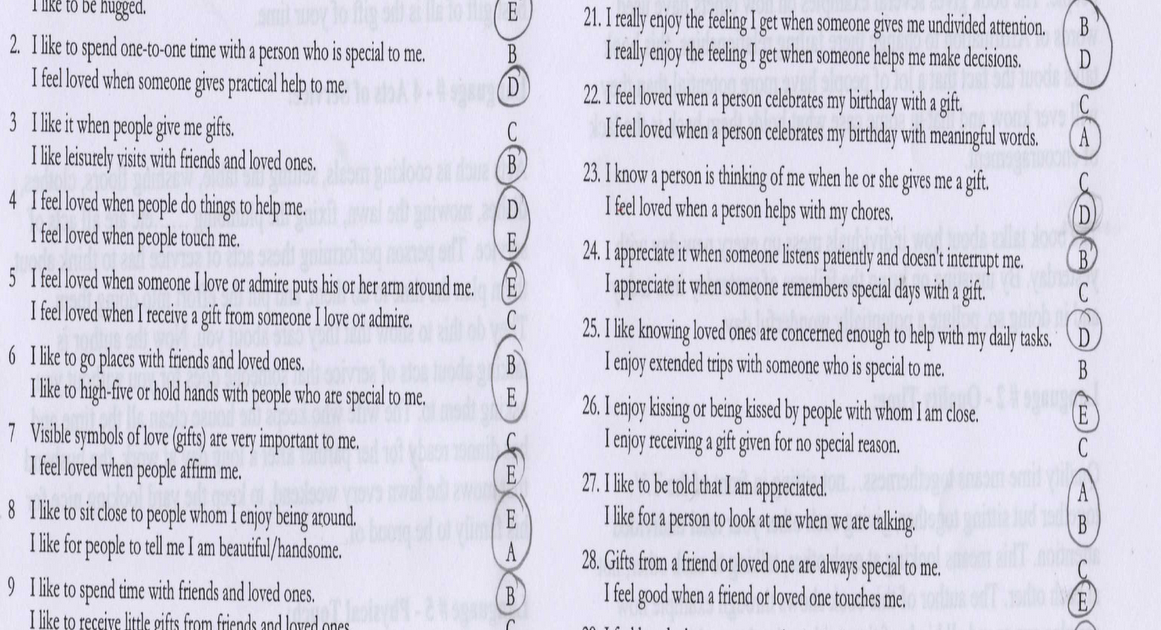 I like to be hugged. E
2. I like to spend one-to-one time with a person who is special to me. B
I feel loved when someone gives practical help to me. D
3 I like it when people give me gifts. C
I like leisurely visits with friends and loved ones. B
4 I feel loved when people do things to help me. D
I feel loved when people touch me. E
5 I feel loved when someone I love or admire puts his or her arm around me. E
I feel loved when I receive a gift from someone I love or admire. C
6 I like to go places with friends and loved ones. B
I like to high-five or hold hands with people who are special to me. E
7 Visible symbols of love (gifts) are very important to me. C
I feel loved when people affirm me. E
8 I like to sit close to people whom I enjoy being around. E
I like for people to tell me I am beautiful/handsome. A
9 I like to spend time with friends and loved ones. B
I like to receive little gifts from friends and loved ones. C
21. I really enjoy the feeling I get when someone gives me undivided attention. B
I really enjoy the feeling I get when someone helps me make decisions. D
22. I feel loved when a person celebrates my birthday with a gift. C
I feel loved when a person celebrates my birthday with meaningful words. A
23. I know a person is thinking of me when he or she gives me a gift. C
I feel loved when a person helps with my chores. D
24. I appreciate it when someone listens patiently and doesn't interrupt me. B
I appreciate it when someone remembers special days with a gift. C
25. I like knowing loved ones are concerned enough to help with my daily tasks. D
I enjoy extended trips with someone who is special to me. B
26. I enjoy kissing or being kissed by people with whom I am close. E
I enjoy receiving a gift given for no special reason. C
27. I like to be told that I am appreciated. A
I like for a person to look at me when we are talking. B
28. Gifts from a friend or loved one are always special to me. C
I feel good when a friend or loved one touches me. E